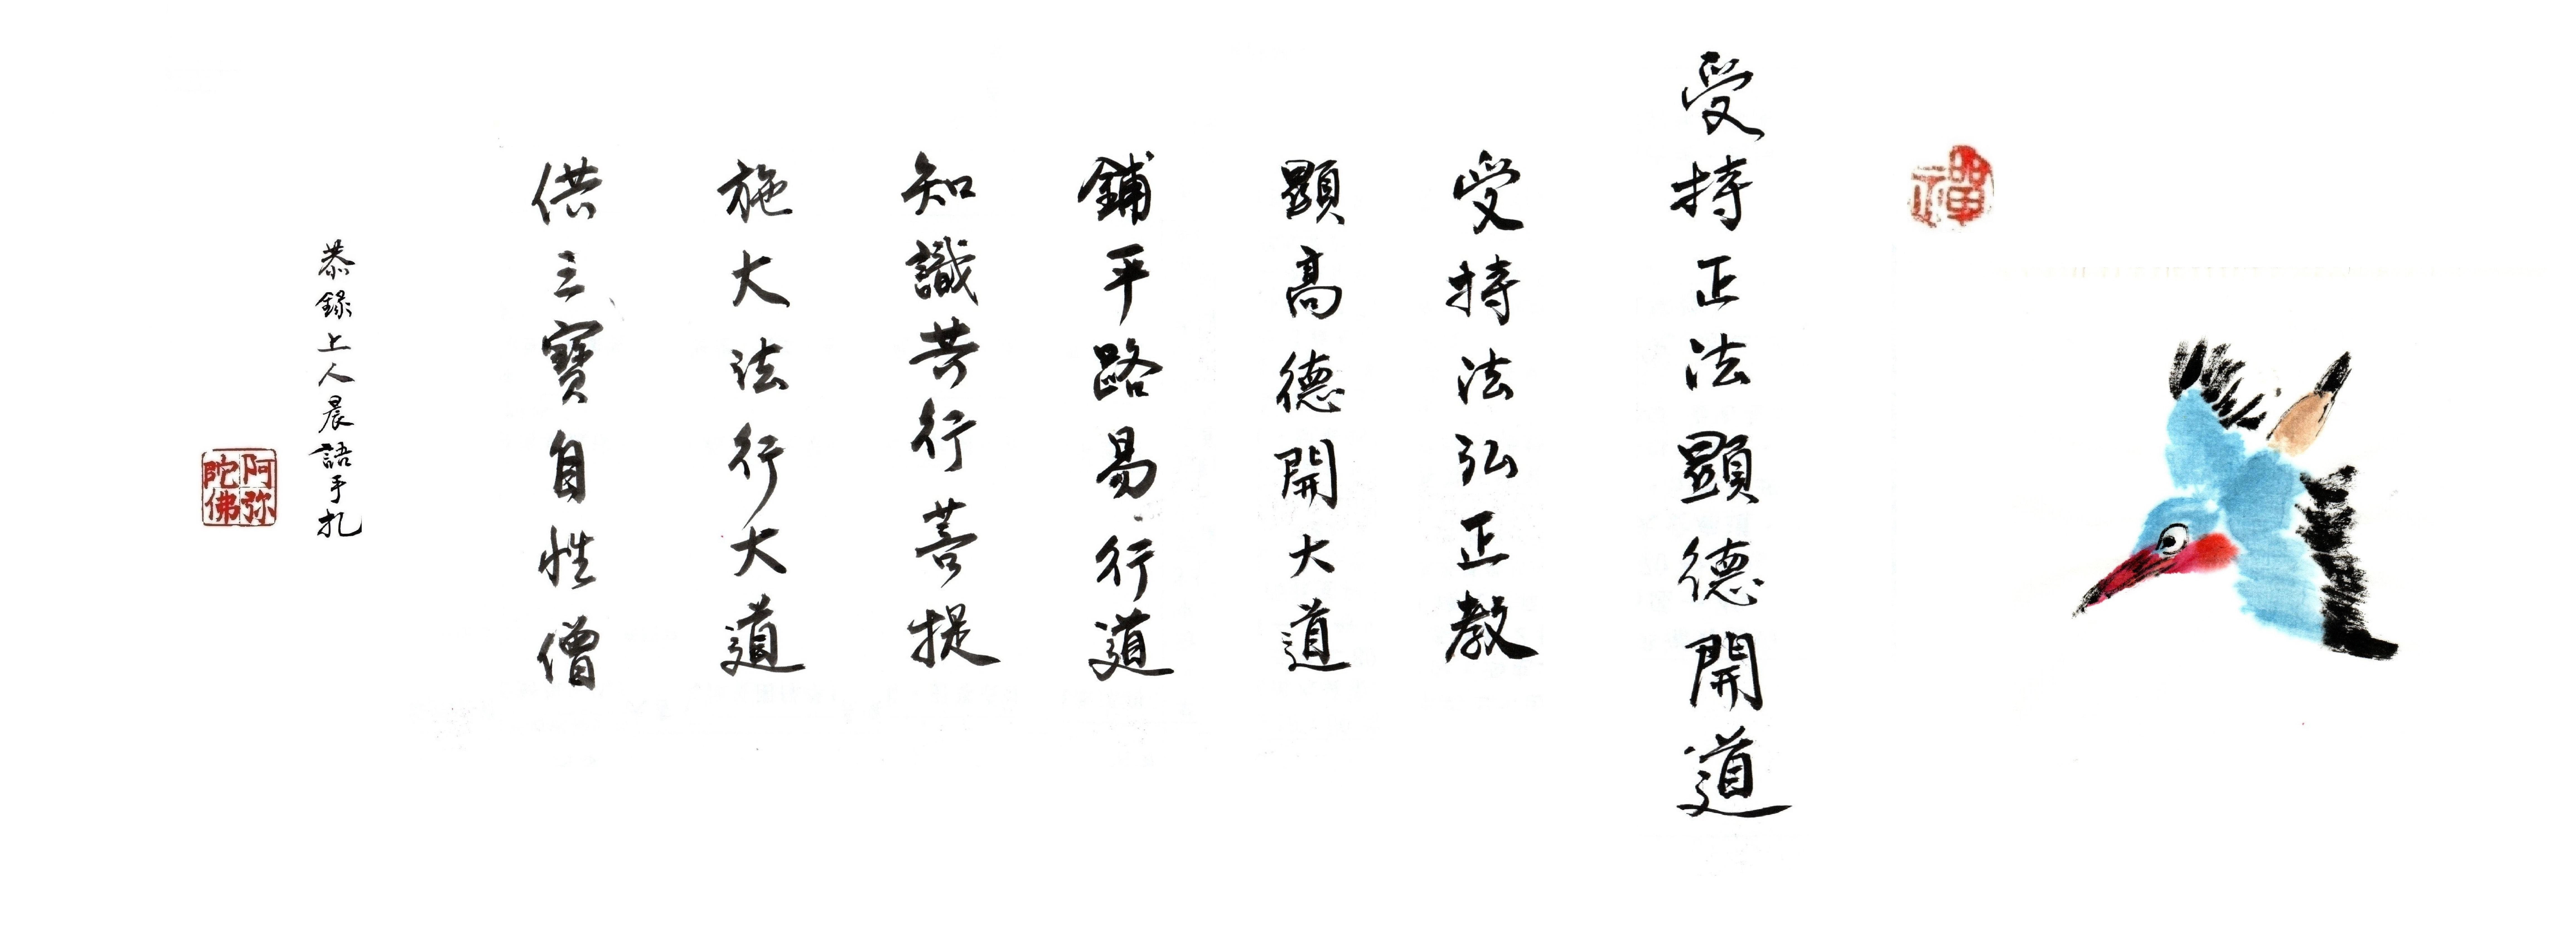 禪
受持正法顯德開道
受持法弘正教
顯高德開大道
鋪平路易行道
知識共行菩提
施大法行大道
供三寶自性僧
恭錄上人晨語手扎
阿弥陀佛